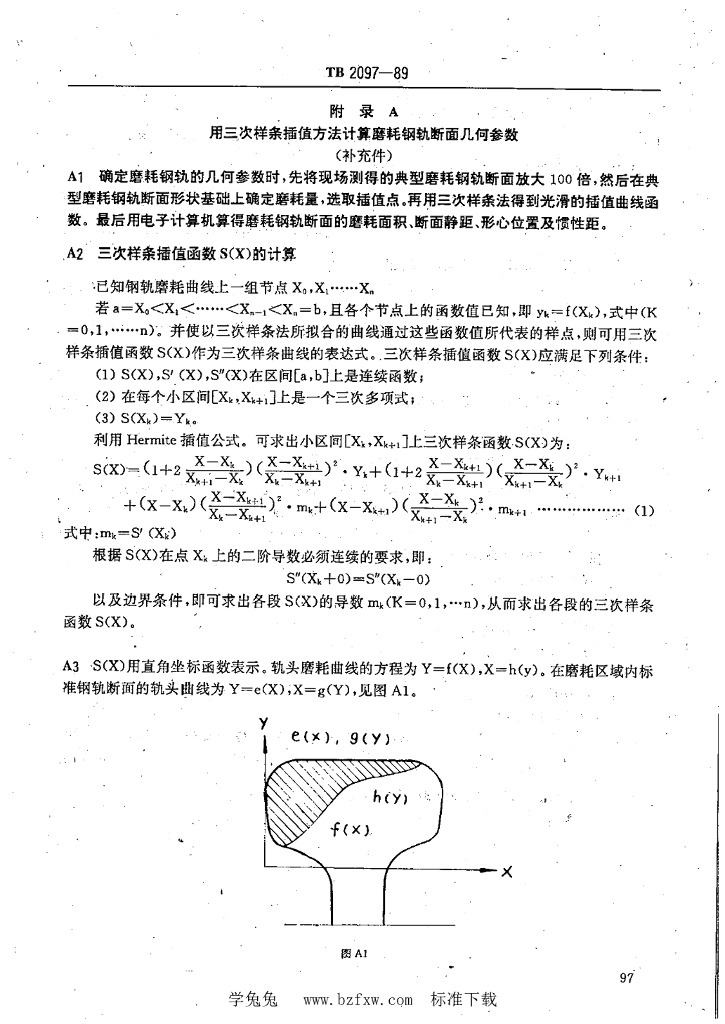 TB 2097—89
附 录 A
用三次样条插值方法计算磨耗钢轨断面几何参数
(补充件)
A1 确定磨耗钢轨的几何参数时,先将现场测得的典型磨耗钢轨断面放大 100 倍,然后在典
型磨耗钢轨断面形状基础上确定磨耗量,选取插值点。再用三次样条法得到光滑的插值曲线函
数。最后用电子计算机算得磨耗钢轨断面的磨耗面积、断面静距、形心位置及惯性距。
A2 三次样条插值函数 S(X)的计算
已知钢轨磨耗曲线上一组节点 X₀,X₁……Xₙ
若 a=X₀<X₁<……<Xₙ₋₁<Xₙ=b,且各个节点上的函数值已知,即 yₖ=f(Xₖ),式中(K
=0,1,……n)。并使以三次样条法所拟合的曲线通过这些函数值所代表的样点,则可用三次
样条插值函数 S(X)作为三次样条曲线的表达式。三次样条插值函数 S(X)应满足下列条件:
(1) S(X),S′(X),S″(X)在区间[a,b]上是连续函数;
(2) 在每个小区间[Xₖ,Xₖ₊₁]上是一个三次多项式;
(3) S(Xₖ)=Yₖ。
利用 Hermite 插值公式。可求出小区间[Xₖ,Xₖ₊₁]上三次样条函数 S(X)为:
S(X)=(1+2 (X−Xₖ)/(Xₖ₊₁−Xₖ))((X−Xₖ₊₁)/(Xₖ−Xₖ₊₁))²·Yₖ+(1+2 (X−Xₖ₊₁)/(Xₖ−Xₖ₊₁))((X−Xₖ)/(Xₖ₊₁−Xₖ))²·Yₖ₊₁
+(X−Xₖ)((X−Xₖ₊₁)/(Xₖ−Xₖ₊₁))²·mₖ+(X−Xₖ₊₁)((X−Xₖ)/(Xₖ₊₁−Xₖ))²·mₖ₊₁ ……………… (1)
式中:mₖ=S′(Xₖ)
根据 S(X)在点 Xₖ 上的二阶导数必须连续的要求,即:
S″(Xₖ+0)=S″(Xₖ−0)
以及边界条件,即可求出各段 S(X)的导数 mₖ(K=0,1,…n),从而求出各段的三次样条
函数 S(X)。
A3 S(X)用直角坐标函数表示。轨头磨耗曲线的方程为 Y=f(X),X=h(y)。在磨耗区域内标
准钢轨断面的轨头曲线为 Y=e(X),X=g(Y),见图 A1。
Y
e(x), g(Y)
h(Y)
f(x)
X
图 A1
97
学兔兔 www.bzfxw.com 标准下载